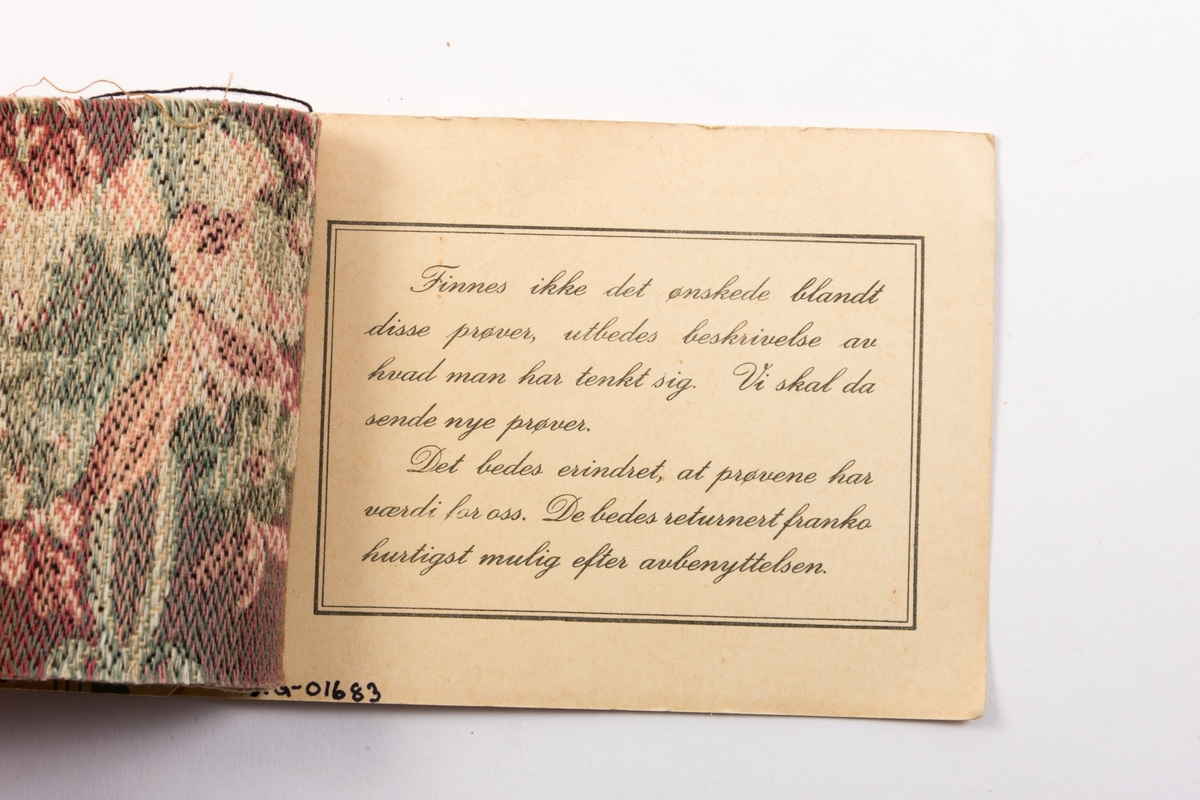 Finnes ikke det ønskede blandt
disse prøver, utbedes beskrivelse av
hvad man har tenkt sig. Vi skal da
sende nye prøver.
Det bedes erindret, at prøvene har
værdi for oss. De bedes returnert franko
hurtigst mulig efter avbenyttelsen.
G-01683